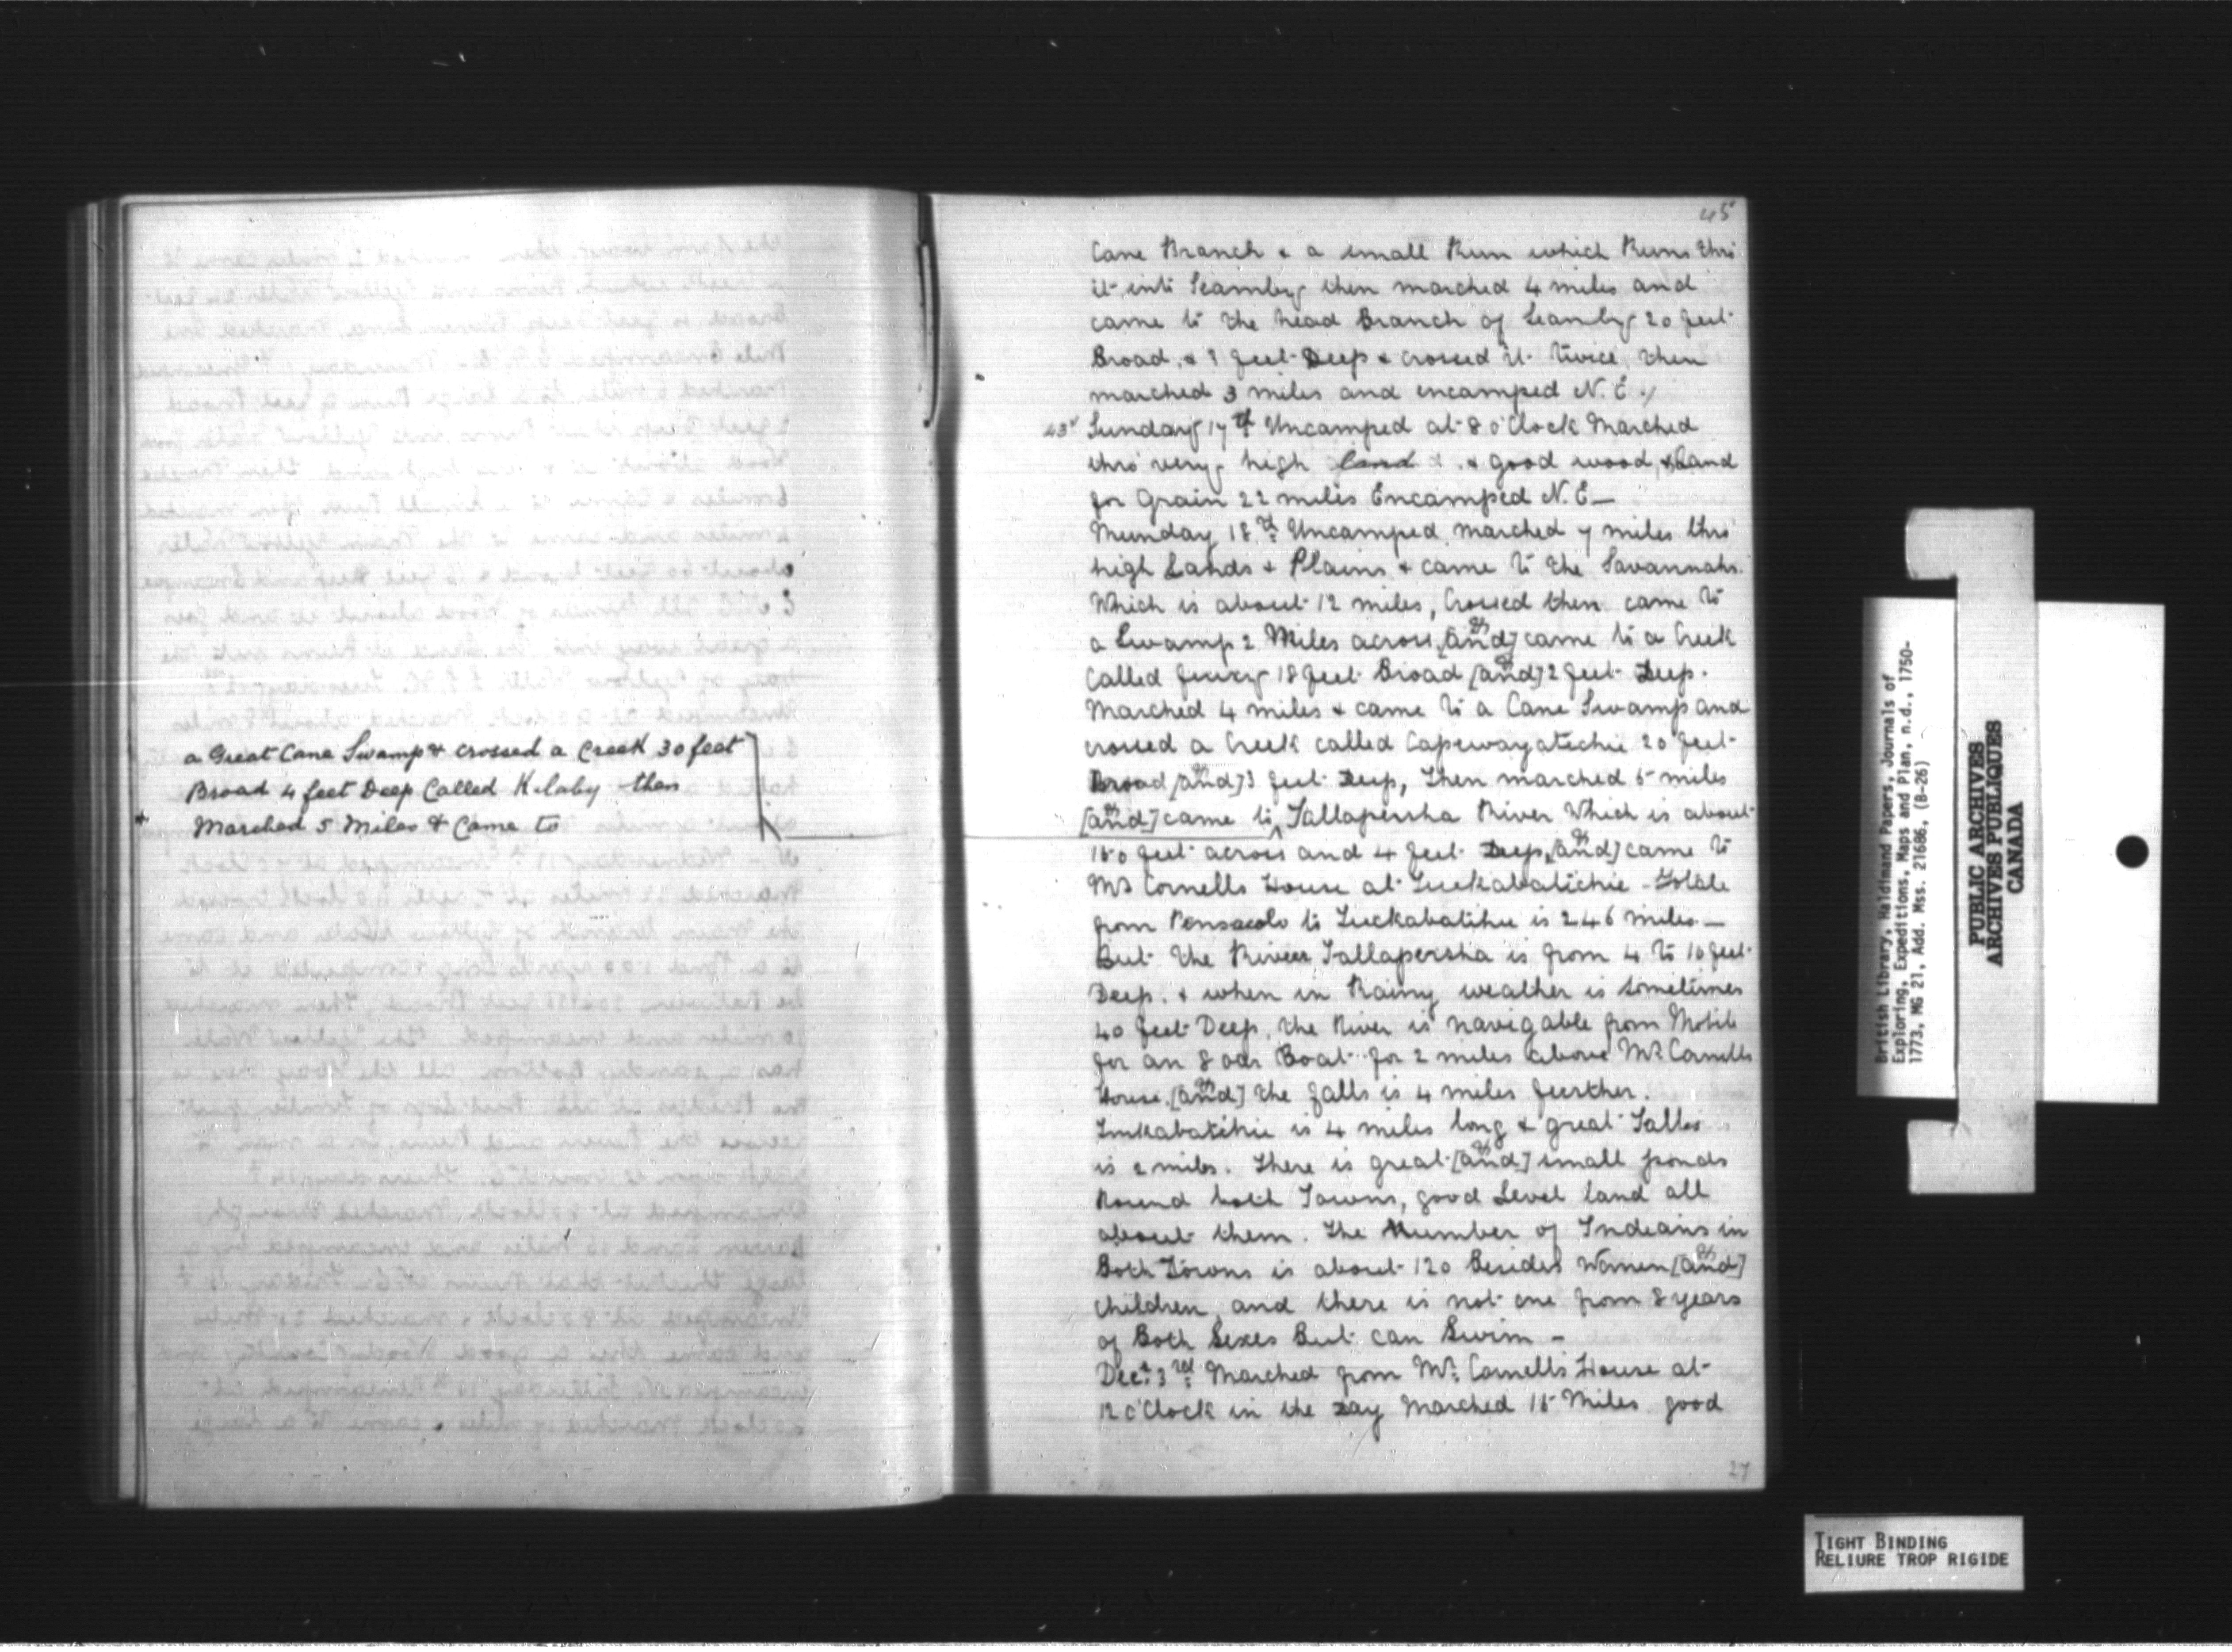 a Great Cane Swamp & crossed a Creek 30 feet
Broad 4 feet Deep Called Kilaby then
Marched 5 Miles & Came to
45
Cane Branch & a small Run which Runs thro'
it into Scamby then marched 4 miles and
came to the head Branch of Scamby 20 feet
Broad & 3 feet Deep & crossed it twice then
marched 3 miles and encamped N.E.
43v Sunday 17th Uncamped at 8 o'Clock Marched
thro' very high land & good wood, & Land
for Grain 22 miles Encamped N.E—
Munday 18th Uncamped marched 7 miles thro'
high Lands & Plains & came to the Savannahs.
Which is about 12 miles, Crossed then came to
a Swamp 2 Miles across [and] came to a Creek
Called 18 feet Broad [and] 2 feet Deep.
Marched 4 miles & came to a Cane Swamp and
crossed a Creek called Capewayatechie 20 feet
Broad [and] 3 feet Deep, Then marched 5 miles
[and] came to Tallapersha River Which is about
150 feet across and 4 feet Deep, [and] came to
Mr Cornells House at Tuckabatichie - Totale
from Pensacola to Tuckabatihie is 246 miles —
But the River Tallapersha is from 4 to 10 feet
Deep. & when in Rainy weather is sometimes
40 feet Deep, the River is navigable from Mobile
for an 8 oar Boat for 2 miles above Mr. Cornells
House. [and] the falls is 4 miles further.
Tuckabatihie is 4 miles long & great Tallis
is 2 miles. There is great [and] small ponds
Round both Towns, good Level land all
about them. The Number of Indians in
Both Towns is about 120 Besides Women [and]
children, and there is not one from 8 years
of Both Sexes But can Swim —
Decr. 3rd Marched from Mr. Cornells House at
12 o'Clock in the Day Marched 15 Miles good
27
British Library, Haldimand Papers, Journals of
Exploring, Expeditions, Maps and Plan, n.d., 1750-
1773, MG 21, Add. Mss. 21686, (B-26)
PUBLIC ARCHIVES
ARCHIVES PUBLIQUES
CANADA
TIGHT BINDING
RELIURE TROP RIGIDE